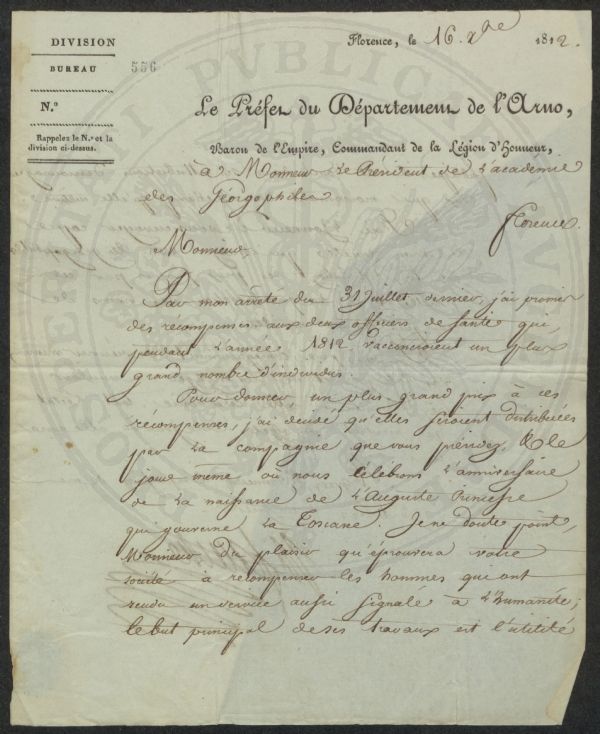 DIVISION
BUREAU
556
N.º
Rappelez le N.º et la
division ci-dessus.
Florence, le 16. Xbre 1812.
Le Préfet du Département de l'Arno,
Baron de l'Empire, Commandant de la Légion d'Honneur,
à Monsieur Le Président de L'académie
des Géorgophiles
Florence.
Monsieur
Par mon arrêté du 31 Juillet dernier, j'ai promis
des récompenses aux deux officiers de santé qui,
pendant L'année 1812 vaccineroient un plus
grand nombre d'individus.
Pour donner un plus grand prix à ces
récompenses, j'ai décidé qu'elles seroient distribuées
par La compagnie que vous présidez, & le
jour même où nous célébrons L'anniversaire
de La naissance de L'Auguste Princesse
qui gouverne La Toscane. Je ne doute point,
Monsieur du plaisir qu'éprouvera votre
société à récompenser les hommes qui ont
rendu un service aussi signalé à L'humanité;
le but principal de ses travaux est l'utilité